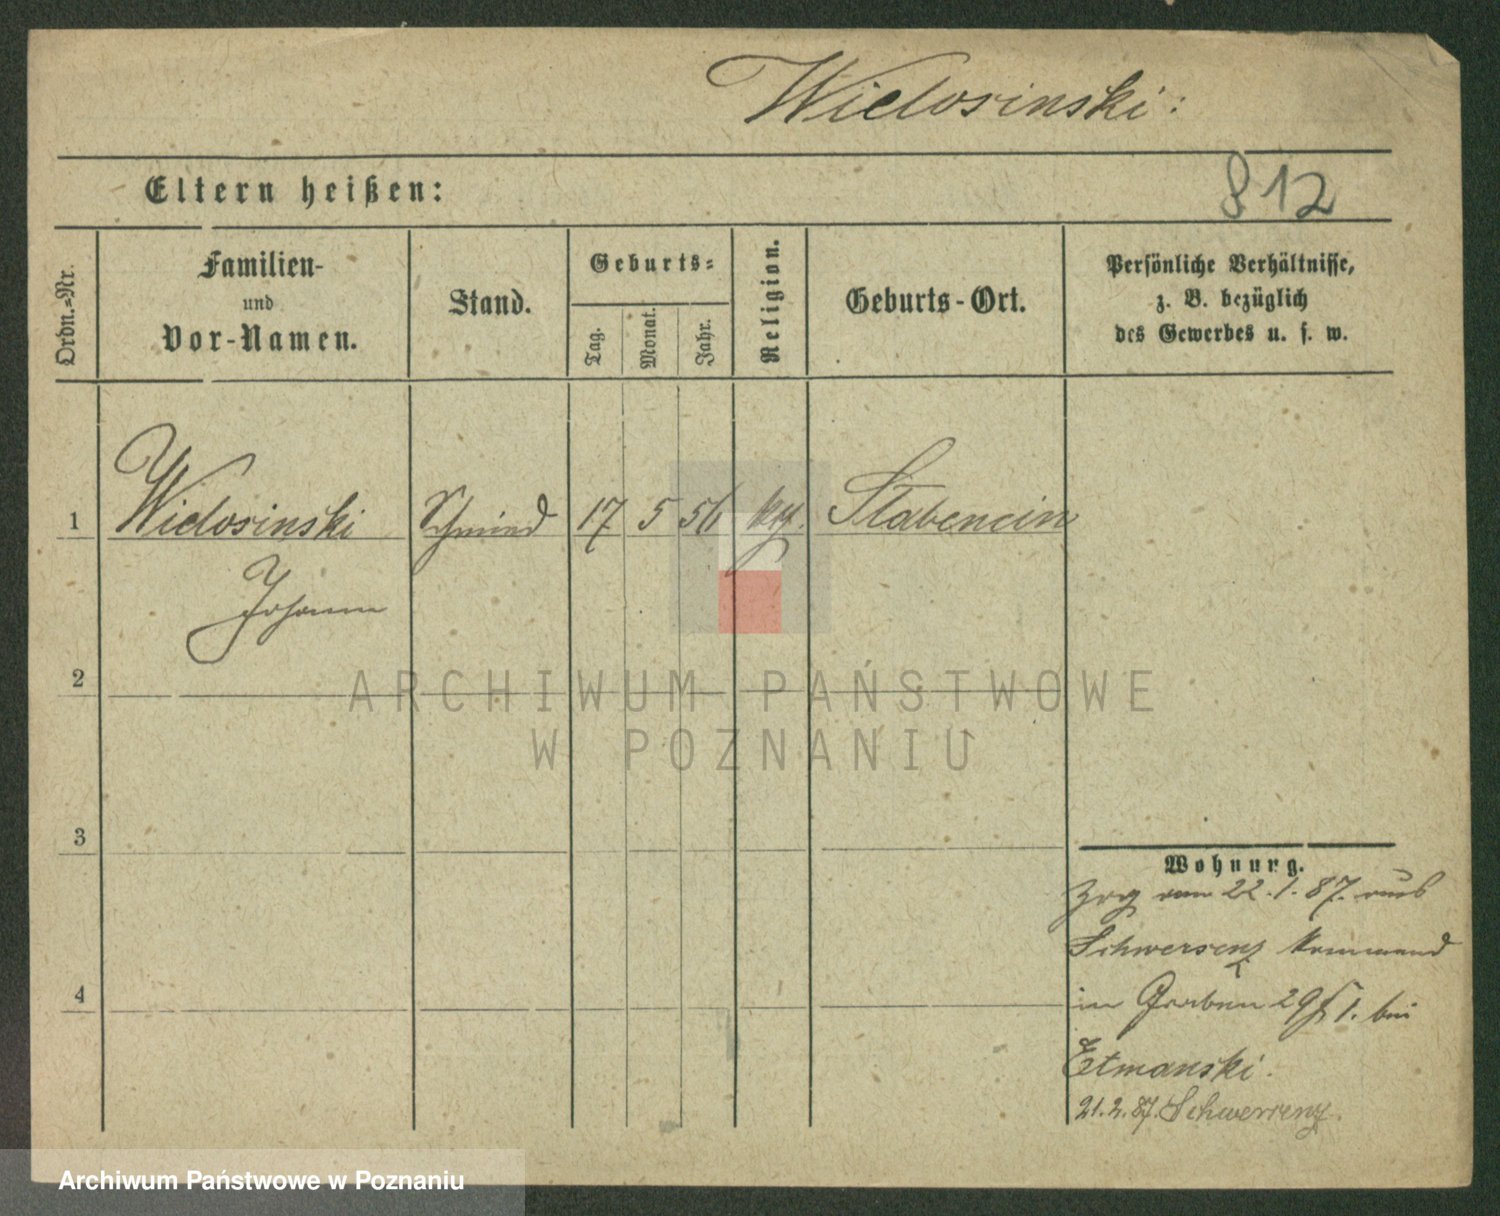 Wielosinski:
812
Eltern heißen:
Ordn.-Nr.
Familien-
und
Vor-Namen.
Stand.
Geburts-
Tag.
Monat.
Jahr.
Religion.
Geburts-Ort.
Persönliche Verhältnisse,
z. B. bezüglich
des Gewerbes u. s. w.
1 Wielosinski Schmied 17 5 56 Stabencin
Johann
2
3
4
Wohnung.
Zog am 22.1.87. aus
Schwersenz kommend
in Graben 29/1. bei
Etmanski.
21.2.87. Schwersenz.
ARCHIWUM PAŃSTWOWE
W POZNANIU
Archiwum Państwowe w Poznaniu